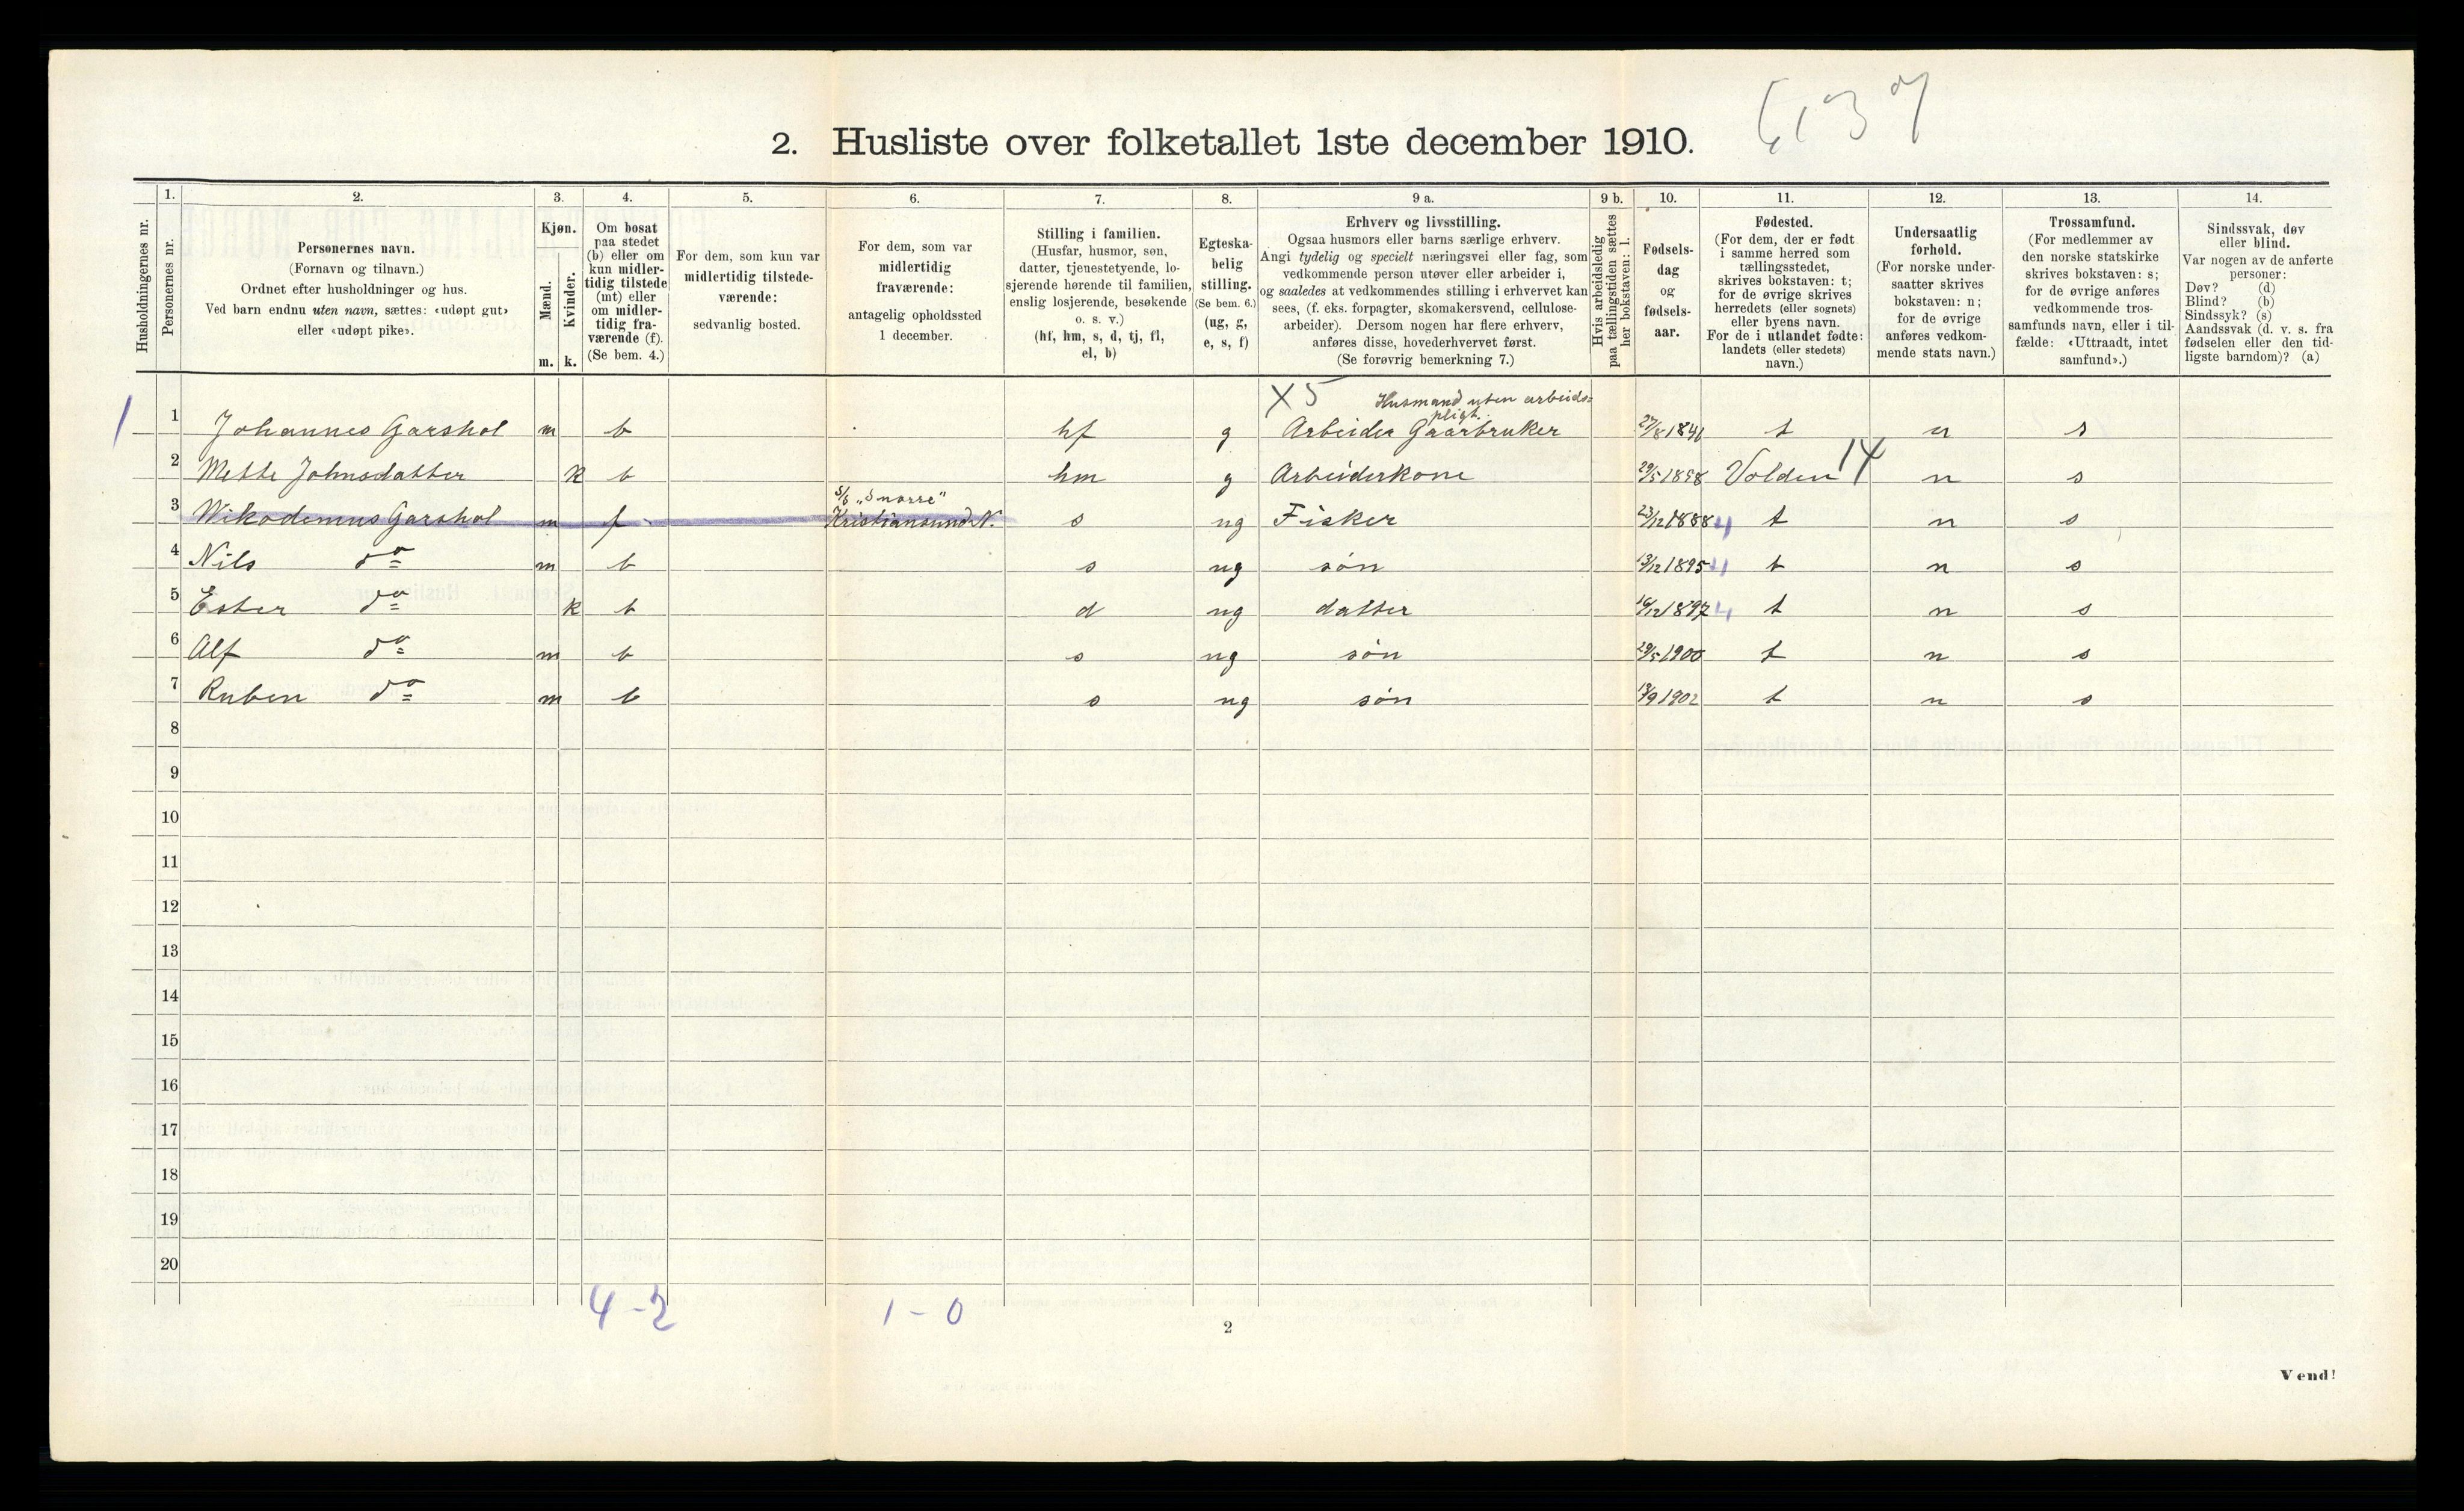 2. Husliste over folketallet 1ste december 1910.
Husholdningernes nr.
1.
Personernes nr.
2.
Personernes navn.
(Fornavn og tilnavn.)
Ordnet efter husholdninger og hus.
Ved barn endnu uten navn, sættes: «udøpt gut»
eller «udøpt pike».
3.
Kjøn.
Mænd.
Kvinder.
m. k.
4.
Om bosat
paa stedet
(b) eller om
kun midler-
tidig tilstede
(mt) eller
om midler-
tidig fra-
værende (f).
(Se bem. 4.)
5.
For dem, som kun var
midlertidig tilstede-
værende:
sedvanlig bosted.
6.
For dem, som var
midlertidig
fraværende:
antagelig opholdssted
1 december.
7.
Stilling i familien.
(Husfar, husmor, søn,
datter, tjenestetyende, lo-
sjerende hørende til familien,
enslig losjerende, besøkende
o. s. v.)
(hf, hm, s, d, tj, fl,
el, b)
8.
Egteska-
belig
stilling.
(Se bem. 6.)
(ug, g,
e, s, f)
9 a.
Erhverv og livsstilling.
Ogsaa husmors eller barns særlige erhverv.
Angi tydelig og specielt næringsvei eller fag, som
vedkommende person utøver eller arbeider i,
og saaledes at vedkommendes stilling i erhvervet kan
sees, (f. eks. forpagter, skomakersvend, cellulose-
arbeider). Dersom nogen har flere erhverv,
anføres disse, hovederhvervet først.
(Se forøvrig bemerkning 7.)
9 b.
Hvis arbeidsledig
paa tællingstiden sættes
her bokstaven: l.
10.
Fødsels-
dag
og
fødsels-
aar.
11.
Fødested.
(For dem, der er født
i samme herred som
tællingsstedet,
skrives bokstaven: t;
for de øvrige skrives
herredets (eller sognets)
eller byens navn.
For de i utlandet fødte:
landets (eller stedets)
navn.)
12.
Undersaatlig
forhold.
(For norske under-
saatter skrives
bokstaven: n;
for de øvrige
anføres vedkom-
mende stats navn.)
13.
Trossamfund.
(For medlemmer av
den norske statskirke
skrives bokstaven: s;
for de øvrige anføres
vedkommende tros-
samfunds navn, eller i til-
fælde: «Uttraadt, intet
samfund».)
14.
Sindssvak, døv
eller blind.
Var nogen av de anførte
personer:
Døv? (d)
Blind? (b)
Sindssyk? (s)
Aandssvak (d. v. s. fra
fødselen eller den tid-
ligste barndom)? (a)
X5 Husmand uten arbeids=
pligt.
1 1 Johannes Garshol m b hf g Arbeider Gaarbruker t n s
2 Mette Johnsdatter k b hm g Arbeiderkone 29/5 1858 Volden 14 n s
S/S "Snorre"
3 Nikodemus Garshol m f Kristiansund N. s ug Fisker 23/12 1888 4 t n s
4 Nils do m b s ug søn 13/12 1895 4 t n s
5 Ester do k b d ug datter 16/12 1897 4 t n s
6 Alf do m b s ug søn 29/5 1900 t n s
7 Ruben do m b s ug søn 1902 t n s
8
9
10
11
12
13
14
15
16
17
18
19
20
4-2 1-0
2
Vend!